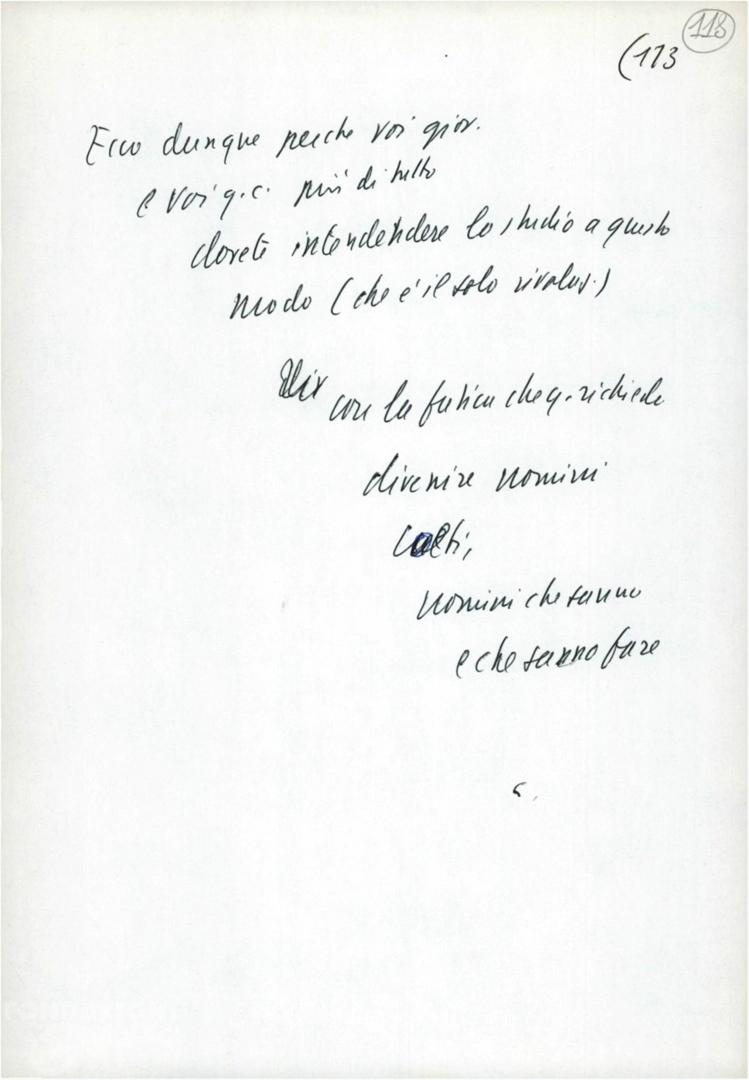 118
(113
Ecco dunque perche voi giov.
e voi g.c. più di tutto
dovete intendendere lo studio a questo
modo (che è il solo rivoluz.)
con la fatica che q. richiede
divenire uomini
colti,
uomini che sanno
e che sanno fare